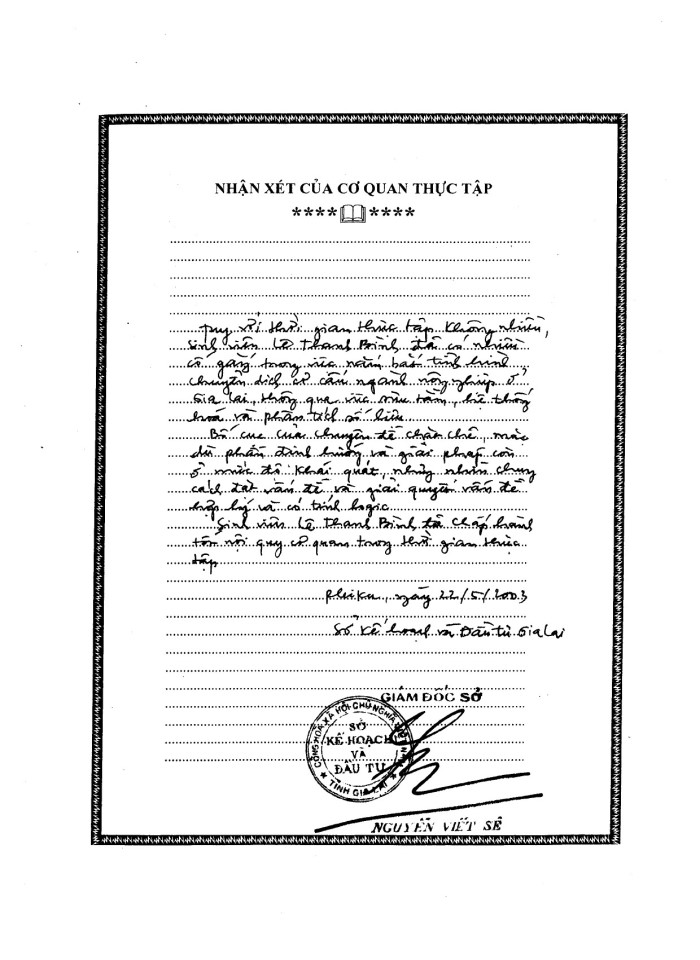 NHẬN XÉT CỦA CƠ QUAN THỰC TẬP
****
****
Tuy với thời gian thực tập không nhiều,
sinh viên Lê Thanh Bình đã có nhiều
cố gắng trong việc nắm bắt tình hình
chuyển dịch cơ cấu ngành nông nghiệp ở
Gia Lai, thông qua việc sưu tầm, hệ thống
hoá và phân tích số liệu
Bố cục của chuyên đề chặt chẽ, mặc
dù phần định hướng và giải pháp còn
ở mức độ khái quát, nhưng nhìn chung
cách đặt vấn đề và giải quyết vấn đề
hợp lý và có tính logic
Sinh viên Lê Thanh Bình đã chấp hành
tốt nội quy cơ quan trong thời gian thực
tập
Pleiku, ngày 22/5/2003
Sở Kế hoạch và Đầu tư Gia Lai
GIÁM ĐỐC SỞ
CỘNG HOÀ XÃ HỘI CHỦ NGHĨA VIỆT NAM
SỞ
KẾ HOẠCH
VÀ
ĐẦU TƯ
★ TỈNH GIA LAI ★
NGUYỄN VIẾT SÊ